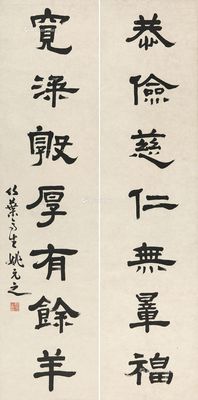 恭儉慈仁無量福
寬深敦厚有餘羊
竹葉亭生姚元之